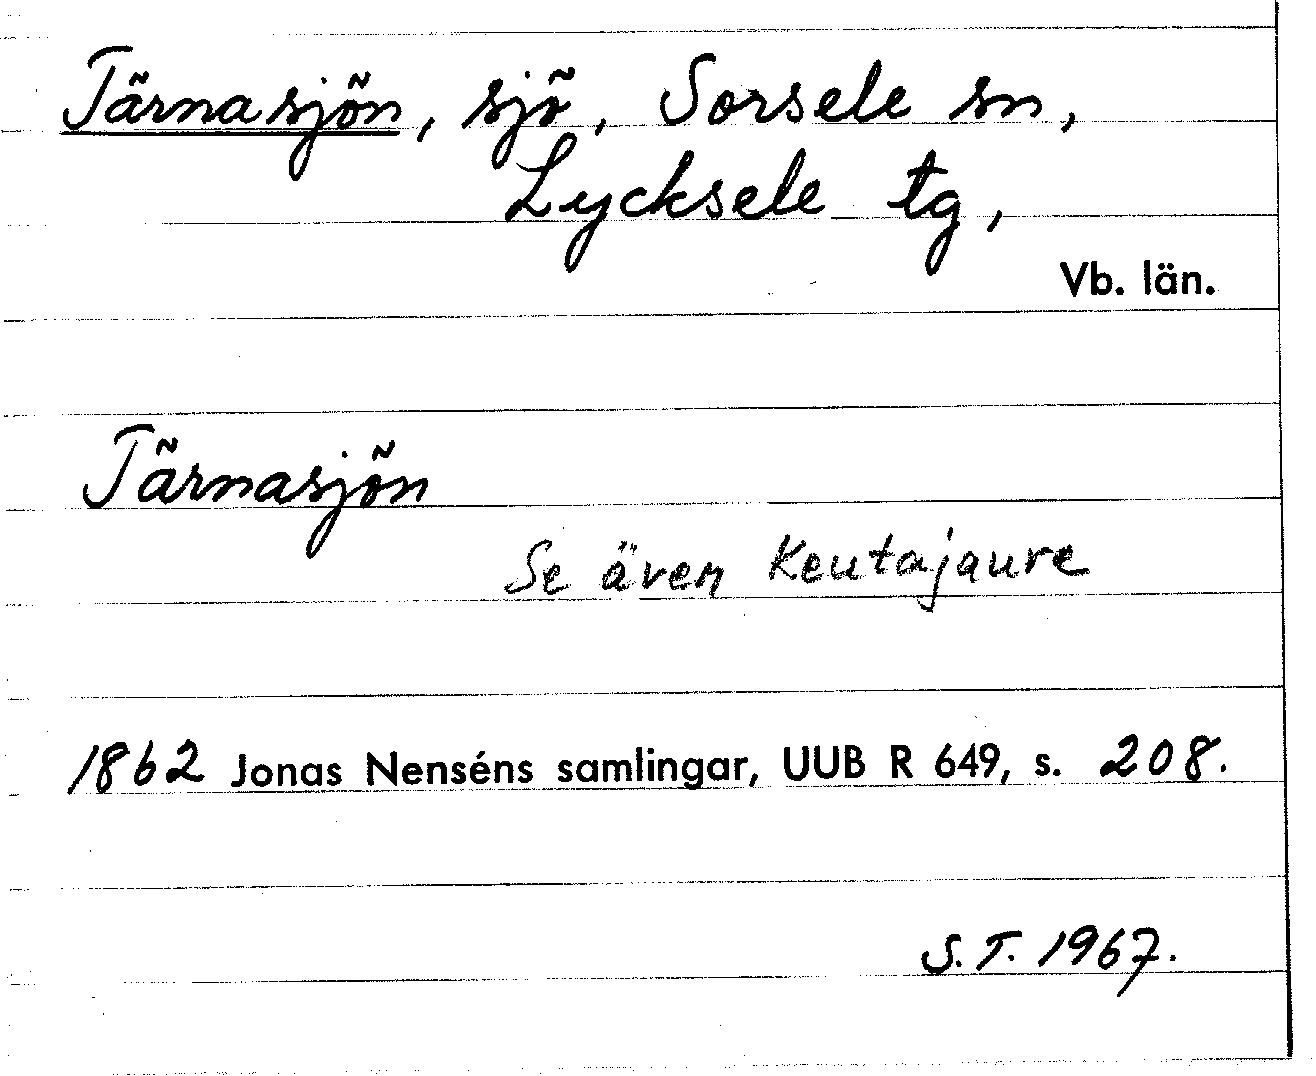 Tärnasjön, sjö, Sorsele sn,
Lycksele tg,
Vb. län.
Tärnasjön
Se även Keutajaure
1862 Jonas Nenséns samlingar, UUB R 649, s. 208.
S.T. 1967.